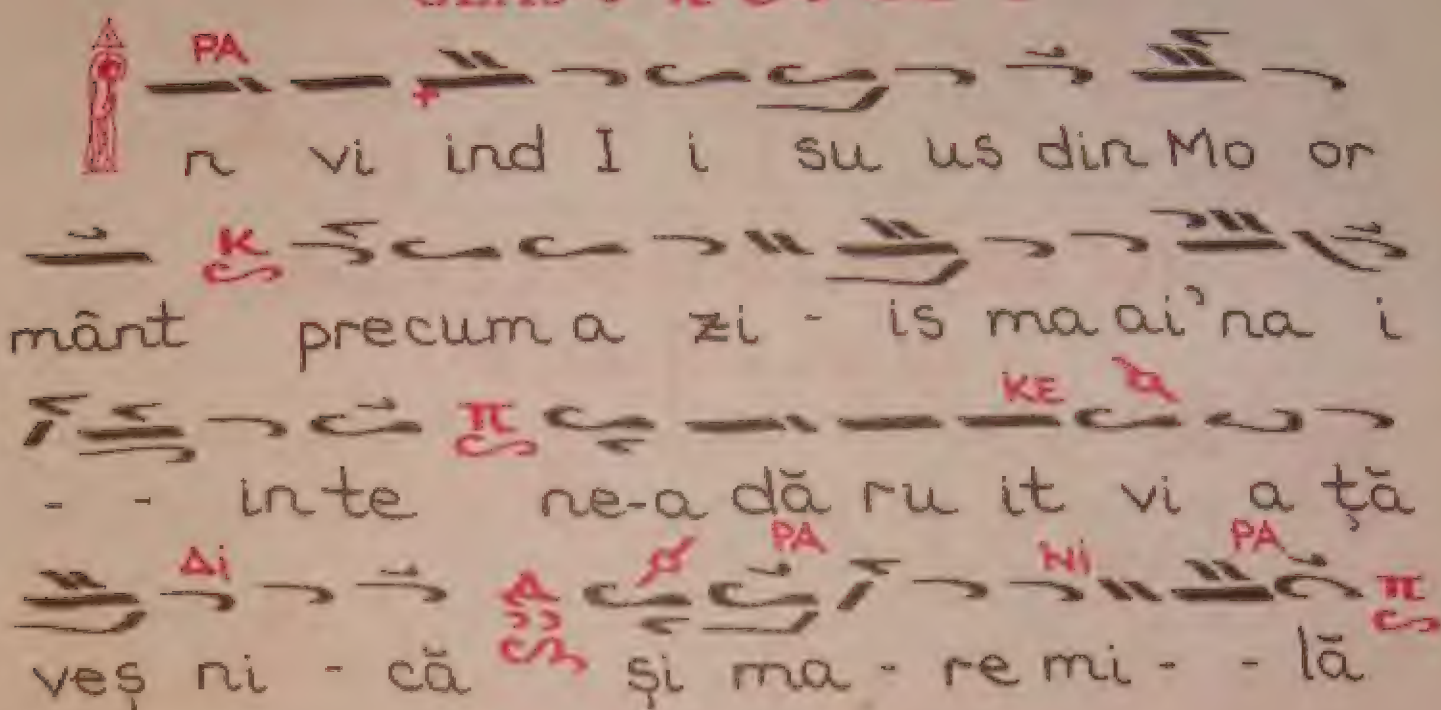 PA
Î n vi ind I i su us din Mo or
K
mânt precum a zi - is ma ai'na i
KE
π
- - in te ne-a dă ru it vi a ță
Δi PA Ni PA
Δ π
veș ni - că și ma - re mi - - lă